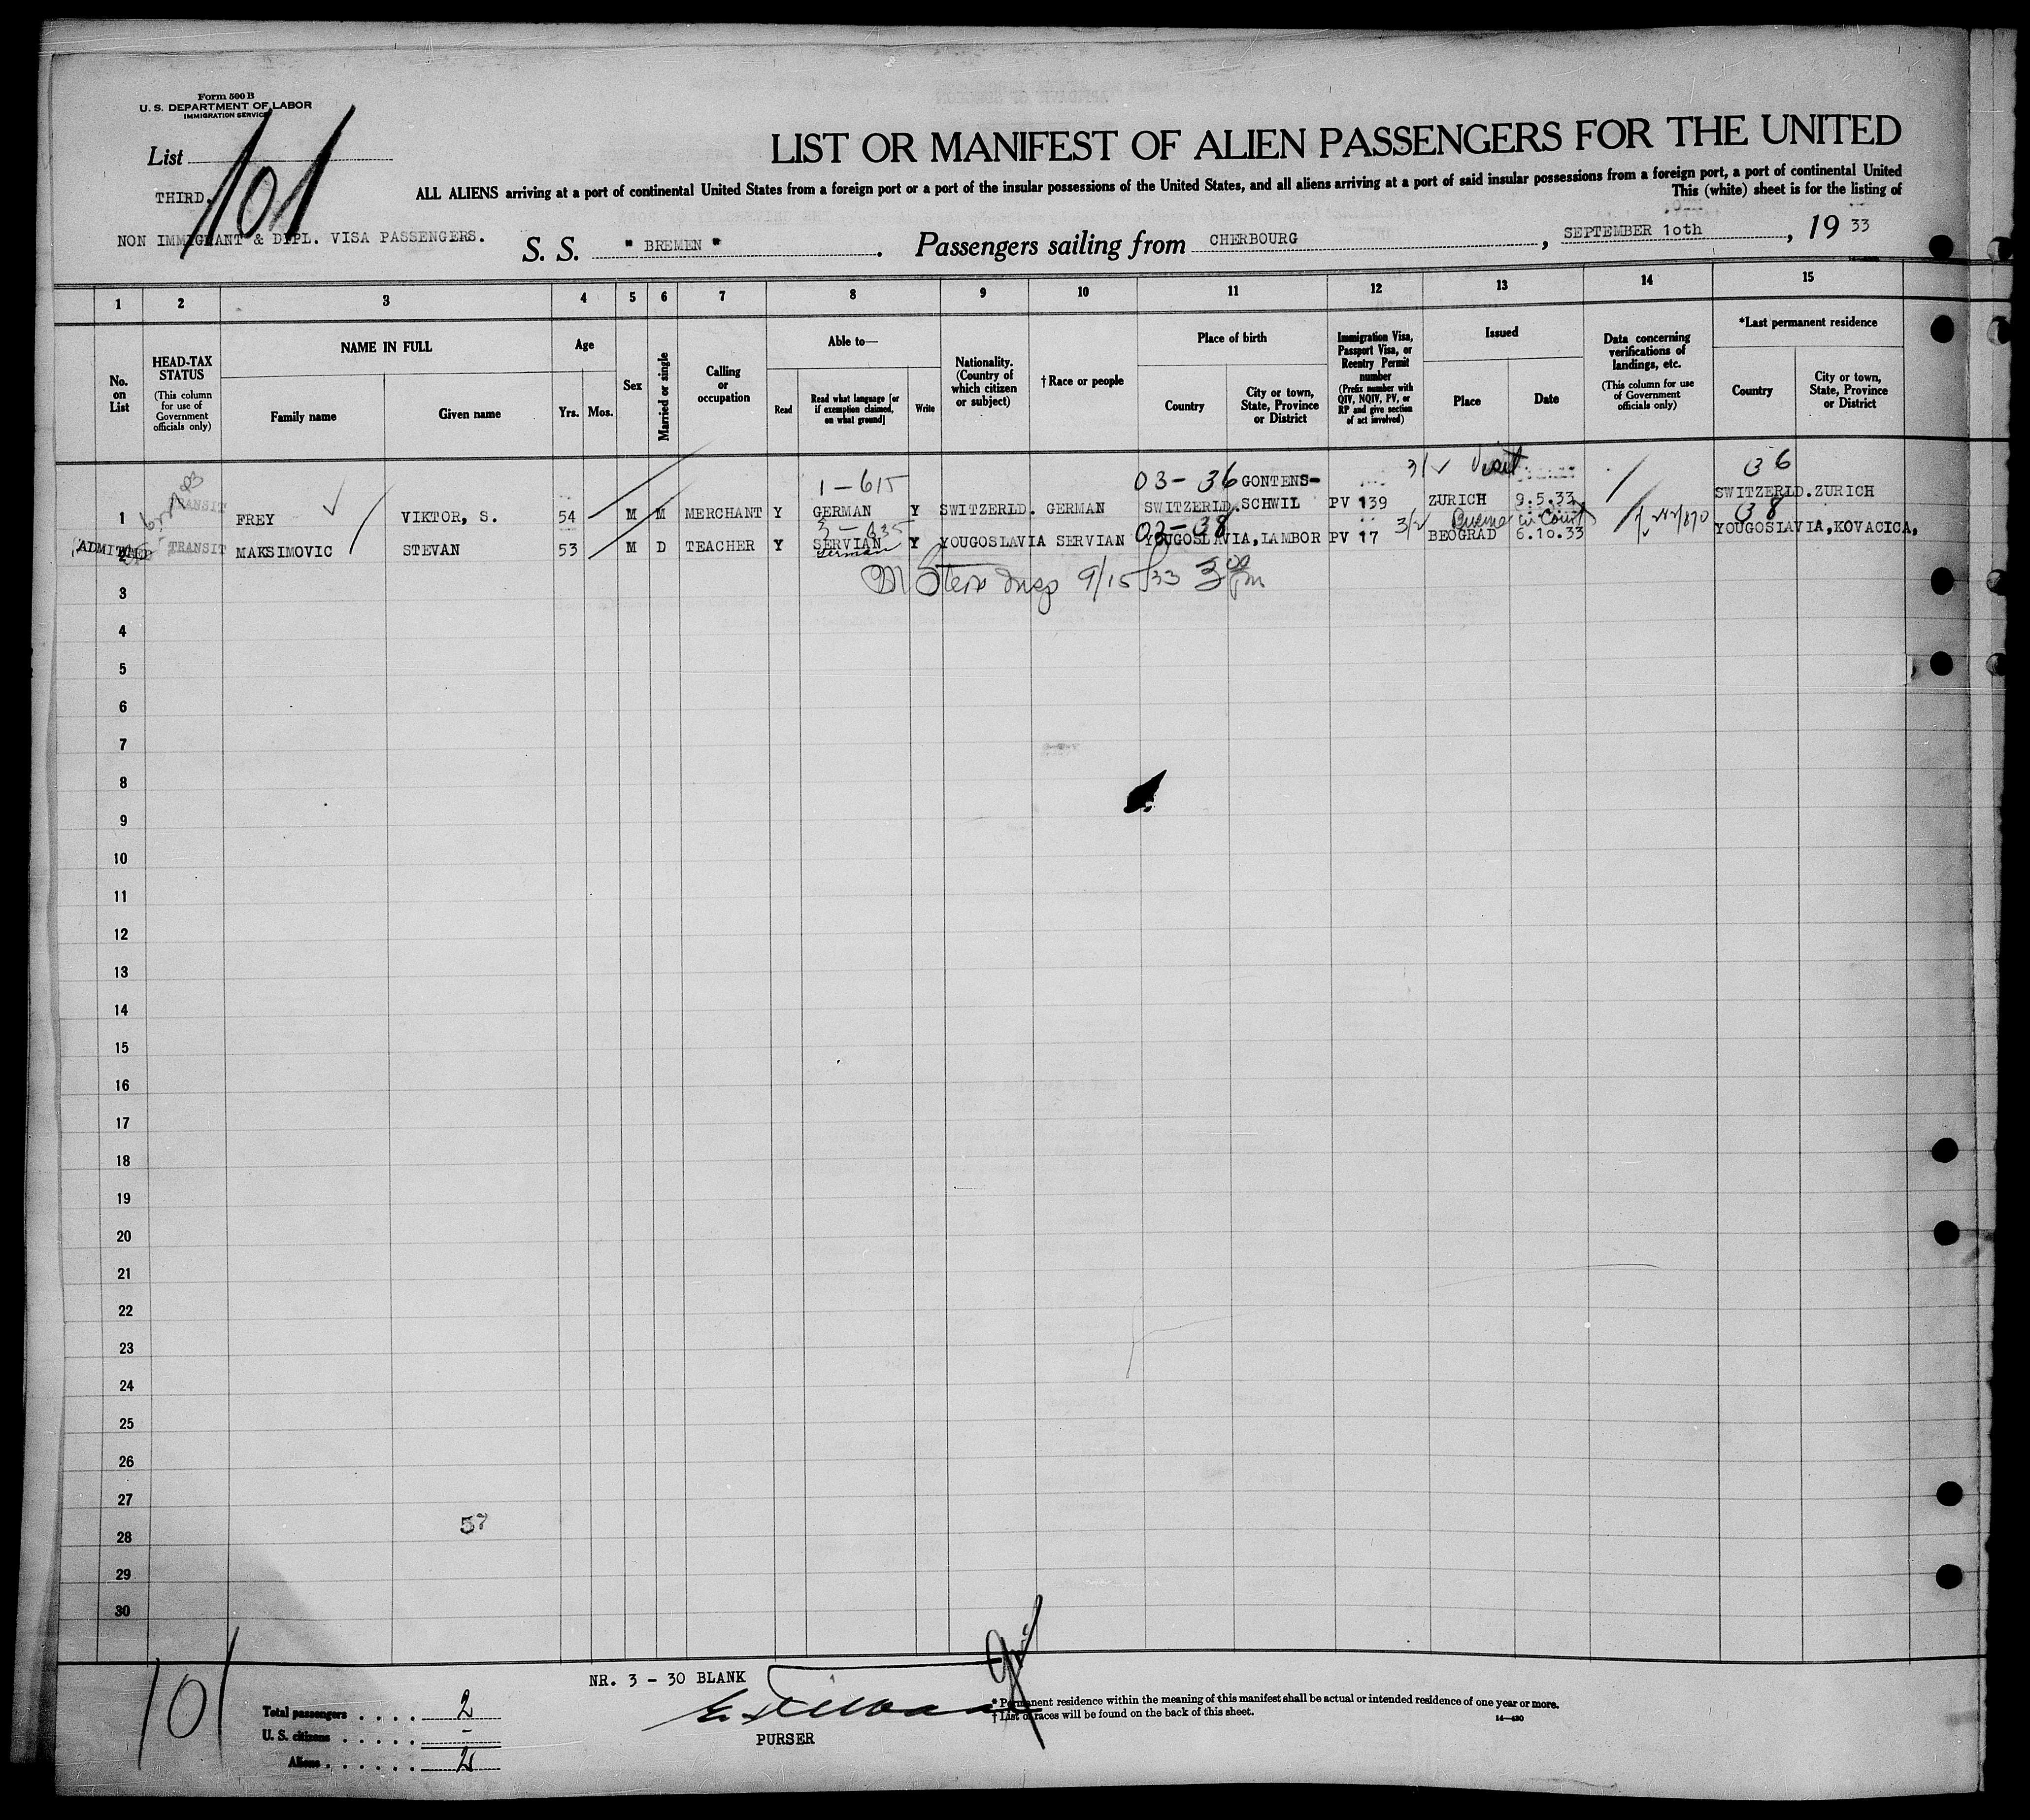 Form 500 B
U. S. DEPARTMENT OF LABOR
IMMIGRATION SERVICE
List
101
THIRD.
NON IMMIGRANT & DIPL. VISA PASSENGERS.
LIST OR MANIFEST OF ALIEN PASSENGERS FOR THE UNITED
ALL ALIENS arriving at a port of continental United States from a foreign port or a port of the insular possessions of the United States, and all aliens arriving at a port of said insular possessions from a foreign port, a port of continental United
This (white) sheet is for the listing of
S. S. " BREMEN " . Passengers sailing from CHERBOURG , SEPTEMBER 10th , 19 33
1 2 3 4 5 6 7 8 9 10 11 12 13 14 15
No. on List
HEAD-TAX STATUS
(This column for use of Government officials only)
NAME IN FULL
Family name
Given name
Age
Yrs. Mos.
Sex
Married or single
Calling or occupation
Able to—
Read
Read what language [or if exemption claimed, on what ground]
Write
Nationality. (Country of which citizen or subject)
†Race or people
Place of birth
Country
City or town, State, Province or District
Immigration Visa, Passport Visa, or Reentry Permit number
(Prefix number with QIV, NQIV, PV, or RP and give section of act involved)
Issued
Place
Date
Data concerning verifications of landings, etc.
(This column for use of Government officials only)
*Last permanent residence
Country
City or town, State, Province or District
1-615 03-36 GONTENS- 31 Visit 36
1 TRANSIT FREY VIKTOR, S. 54 M M MERCHANT Y GERMAN Y SWITZERLD. GERMAN SWITZERLD. SCHWIL PV 139 ZURICH 9.5.33 SWITZERLD. ZURICH
3-635 03-38 3/2 38
ADMITTED 2 TRANSIT MAKSIMOVIC STEVAN 53 M D TEACHER Y SERVIAN Y YOUGOSLAVIA SERVIAN YOUGOSLAVIA, LAMBOR PV 17 BEOGRAD 6.10.33 YOUGOSLAVIA, KOVACICA,
German
Insp 9/15/33 3 00 pm
3
4
5
6
7
8
9
10
11
12
13
14
15
16
17
18
19
20
21
22
23
24
25
26
27
57
28
29
30
101
NR. 3 - 30 BLANK
PURSER
Total passengers . . . . 2
U. S. citizens . . . . . -
Aliens . . . . . . 2
*Permanent residence within the meaning of this manifest shall be actual or intended residence of one year or more.
†List of races will be found on the back of this sheet.
14—430